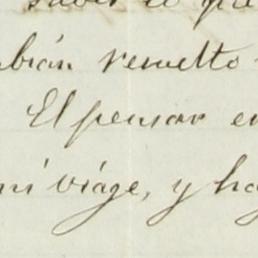 saber lo que
abián resuelto
El pensar en
mi viage, y ha